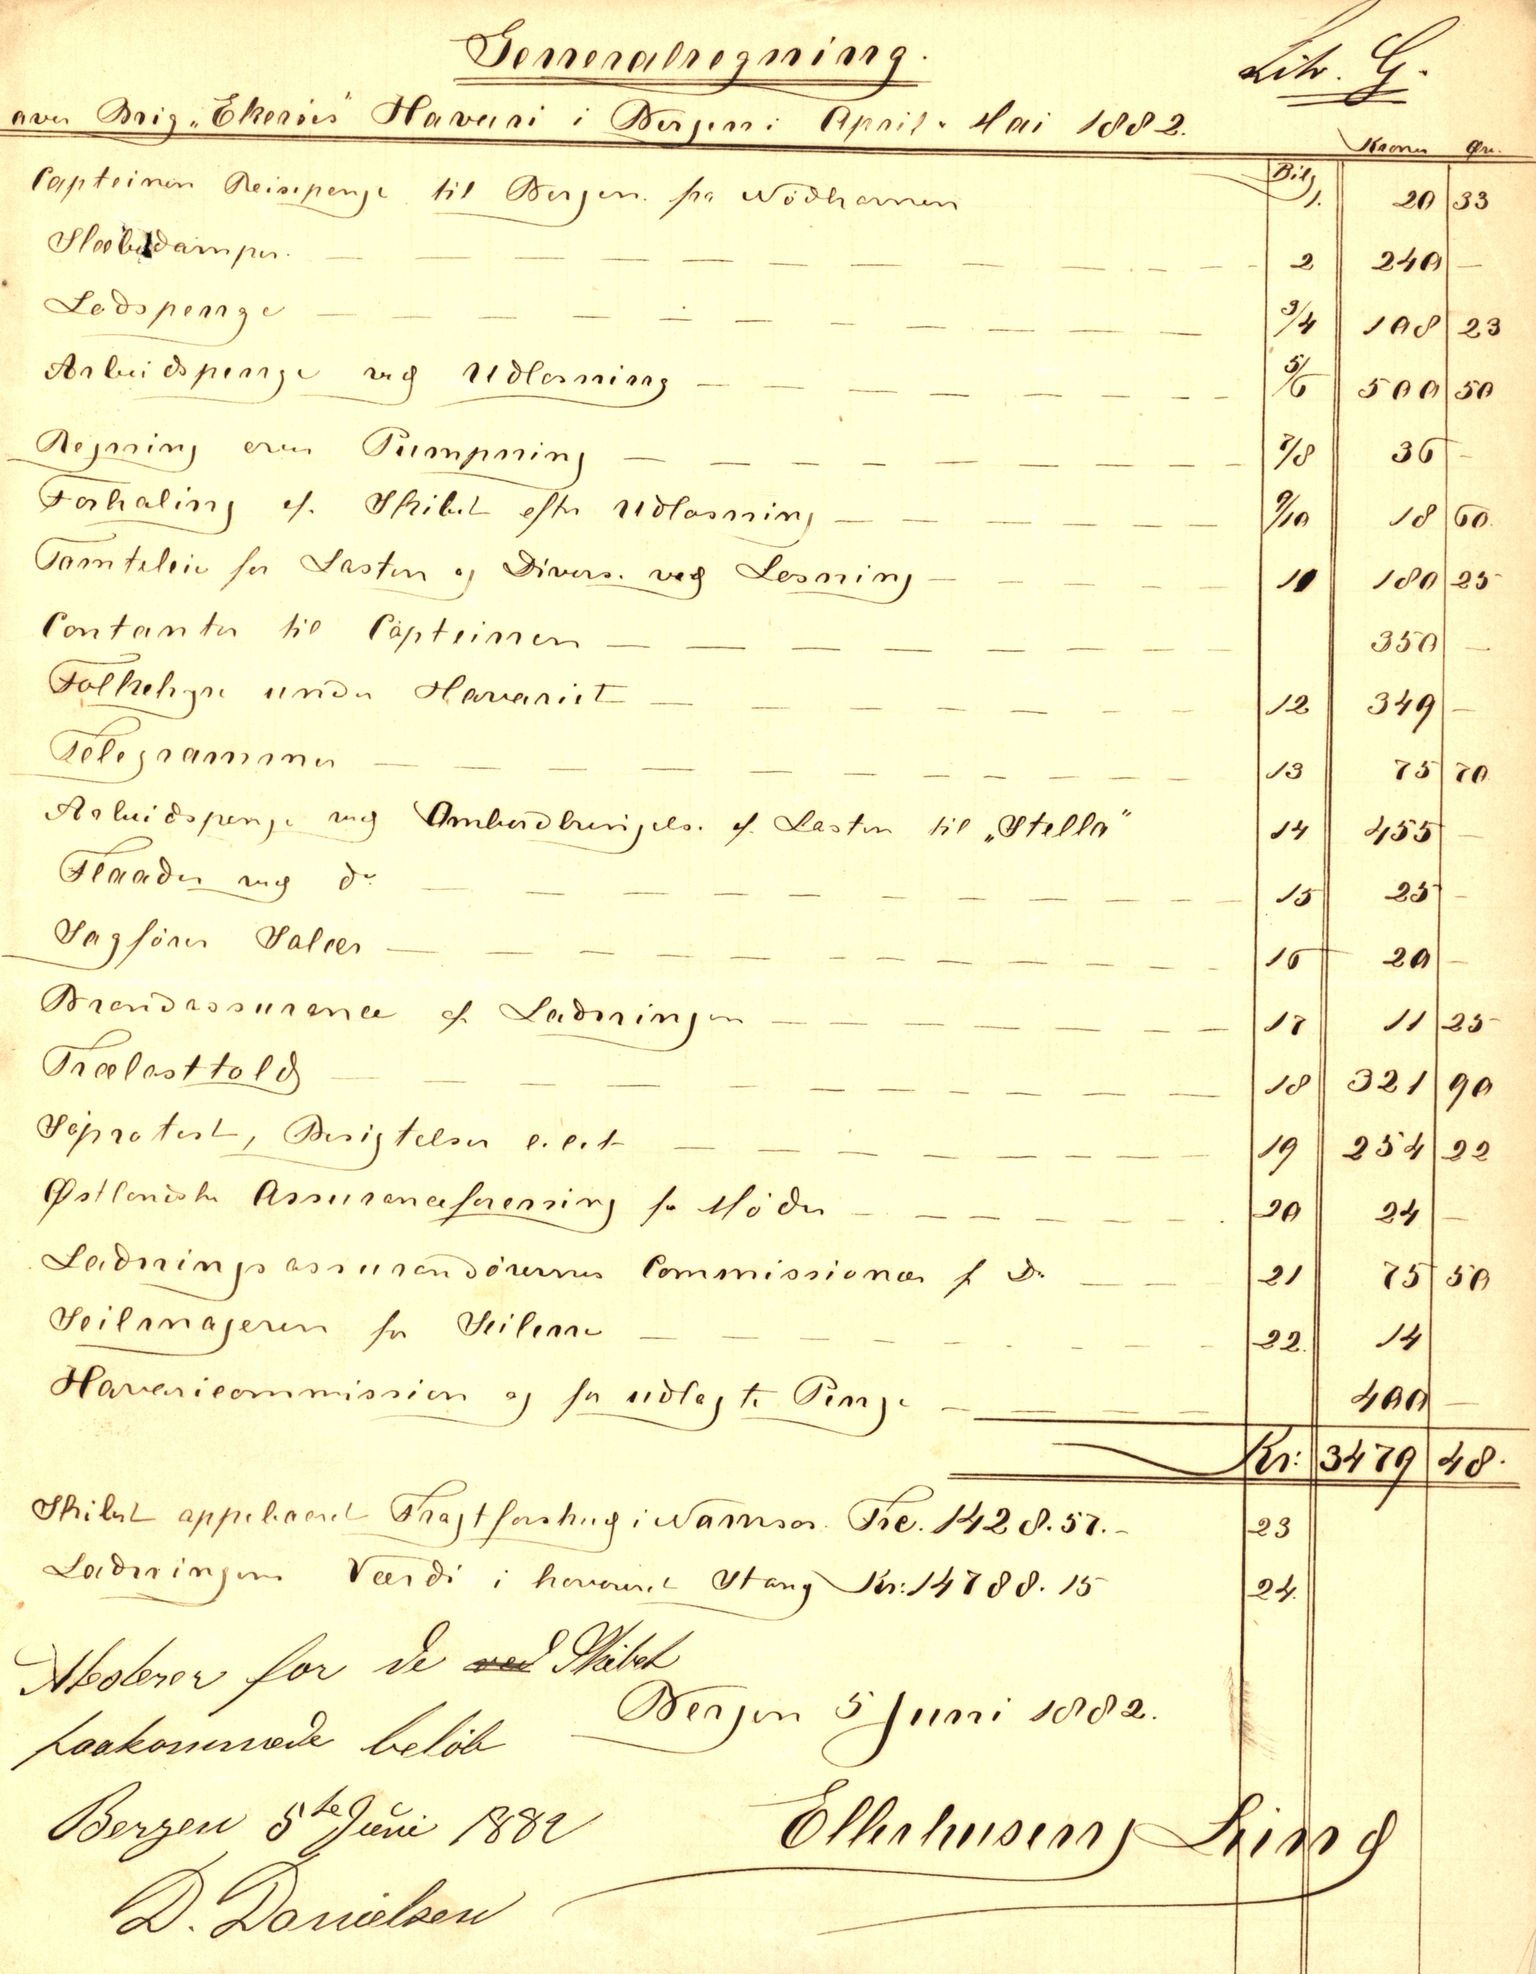 Generalregning.
Litr. G.
over Brig „Ekeröes" Havari i Bergen i April - Mai 1882.
Bilg Kroner Øre.
Capteinens Reisepenge til Bergen fra Nödhavnen 1. 20 33
Slæbedamper. — 2 240 —
Lodspenge — 3/4 108 23
Arbeidspenge ved Udlosning — 5/6 500 50
Regning over Pumpning — 7/8 36 —
Forhaling af Skibet efter Udlosning — 9/10 18 60
Tomteleie for Lasten og Divers. ved Losning — 11 180 25
Contanter til Capteinen — 350 —
Folkehyre under Havariet — 12 349 —
Telegrammer — 13 75 70
Arbeidspenge ved Ombordbringels. af Lasten til „Stella" 14 455 —
Flaader ved do — 15 25 —
Sagförer Salær — 16 20 —
Brandassurance af Ladningen — 17 11 25
Trælasttold — 18 321 90
Söprotest, Besigtelser e.c.t — 19 254 22
Østlandske Assuranceforening for Möder — 20 24 —
Ladningsassurandörernes Commissionær f Do — 21 75 50
Seilmageren for Seilene — 22. 14
Havaricommission og for udlagte Penge — 400 —
Kr: 3479 48.
Skibet oppebaaret Fragtforskud i Namsos. Frc. 1428.57. — 23
Ladningens Værdi i havareret Stand Kr: 14788. 15 24.
Atesterer for de ved Skibet
paakommede belöb
Bergen 5 Juni 1882.
Bergen 5te Juni 1882
Ellerhusen Lund
D. Danielsen